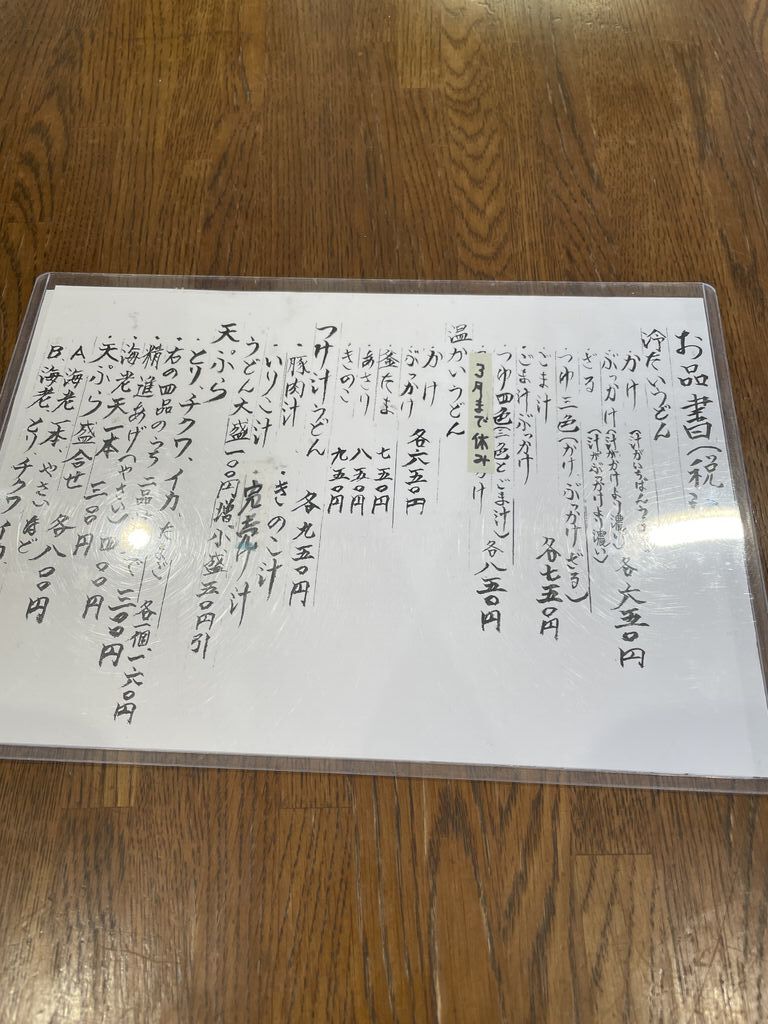 お品書(税
冷たいうどん
かけ(汁がいちばんう
ぶっかけ(汁がかけより濃い)各六五〇円
ざる(汁がぶっかけより濃い)
つゆ三色(かけ、ぶっかけ、ざる)
・ごま汁 各七五〇円
・ごま汁ぶっかけ
・つゆ四色(三色とごま汁)各八五〇円
3月まで休み
かけ
温かいうどん
・かけ
・ぶっかけ 各六五〇円
・釜たま 七五〇円
・あさり 八五〇円
・きのこ 九五〇円
つけ汁うどん
・豚肉汁 各九五〇円
・いりこ汁 ・きのこ汁
完売 汁
うどん大盛一〇〇円増 小盛五〇円引
天ぷら
・とり、チクワ、イカ 各一個、一六〇円
・右の四品のうち二品 三〇〇円
・精進あげ(やさい) 四〇〇円
・海老天一本 三〇〇円
・天ぷら盛合せ 各八〇〇円
A 海老一本、やさいなど
B 海老、とり、チクワ、イカ